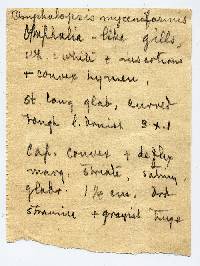 Omphalopsis mycenaformis
Omphalia-like gills,
white + insertions
+ convex hymen,
St long glab, curved
tough l. 3 x .1
Cap. convex + deflex
marg, striate,
glabr. 1½ cm,
straminae + grayish